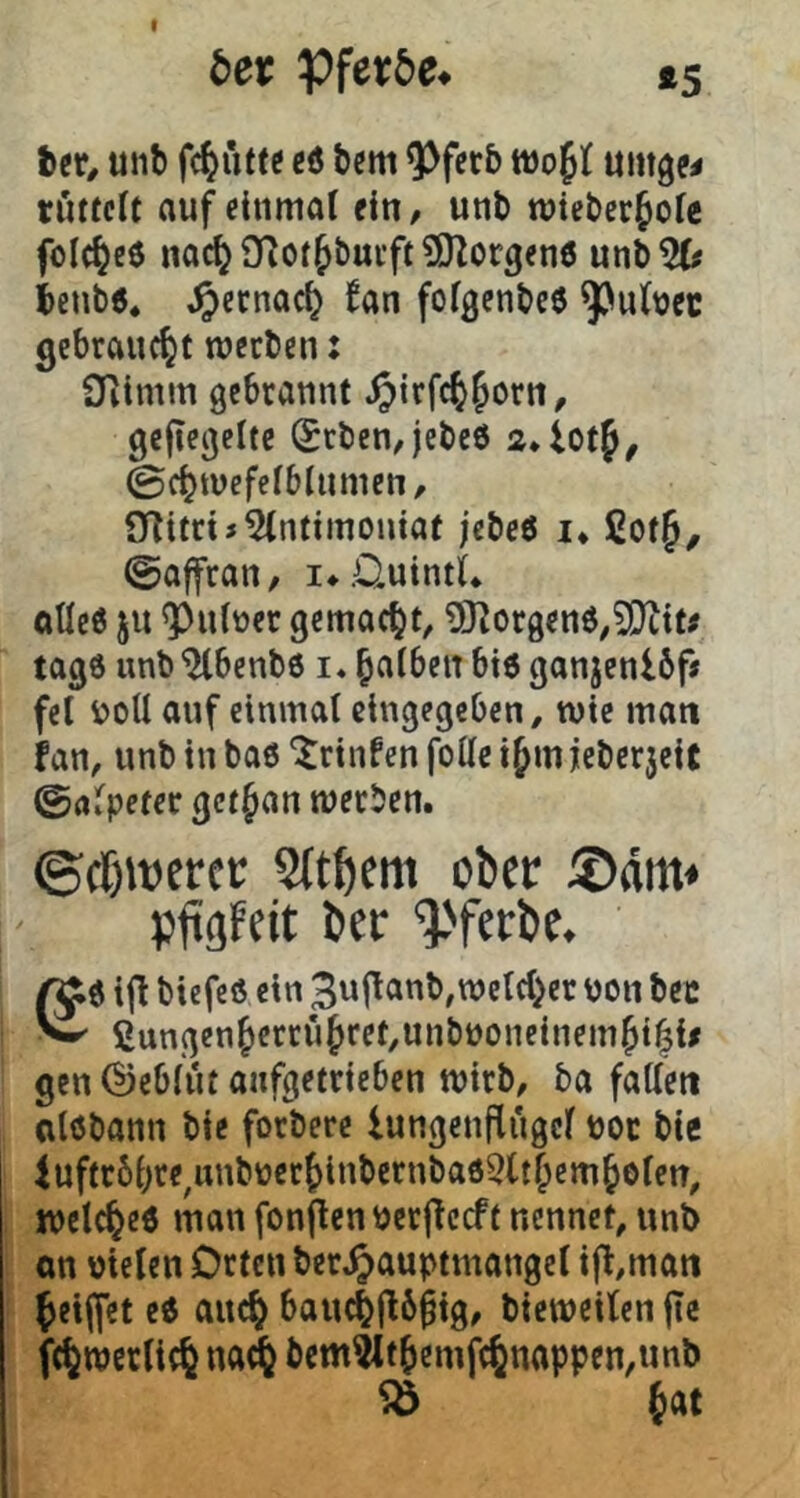 der Pferde. 25
der, und schütte es dem Pferd wohl umge-
rüttelt auf einmal ein, und wiederhole
solches nach Nothdurft Morgens und A-
bends. Hernach kan folgendes Pulver
gebraucht werden:
Nimm gebrannt Hirschhorn,
gesiegelte Erden, jedes 2. Loth,
Schwefelblumen,
Nitri-Antimoniat jedes 1. Loth,
Saffran, 1. Quintl.
alles zu Pulver gemacht, Morgens, Mit-
tags und Abends 1. halben bis ganzen Löf-
fel voll auf einmal eingegeben, wie man
kan, und in das Trinken solle ihm jederzeit
Salpeter gethan werden.
Schwerer Athem oder Däm-
pfigkeit der Pferde.
Es ist dieses ein Zustand, welcher von der
Lungen herrühret, und von einem hitzi-
gen Geblüt aufgetrieben wird, da fallen
alsdann die fordere Lungenflügel vor die
Luftröhre, und verhindern das Athemholen,
welches man sonsten versteckt nennet, und
an vielen Orten der Hauptmangel ist, man
heisset es auch bauchstößig, dieweilen sie
schwerlich nach dem Athem schnappen, und
B hat